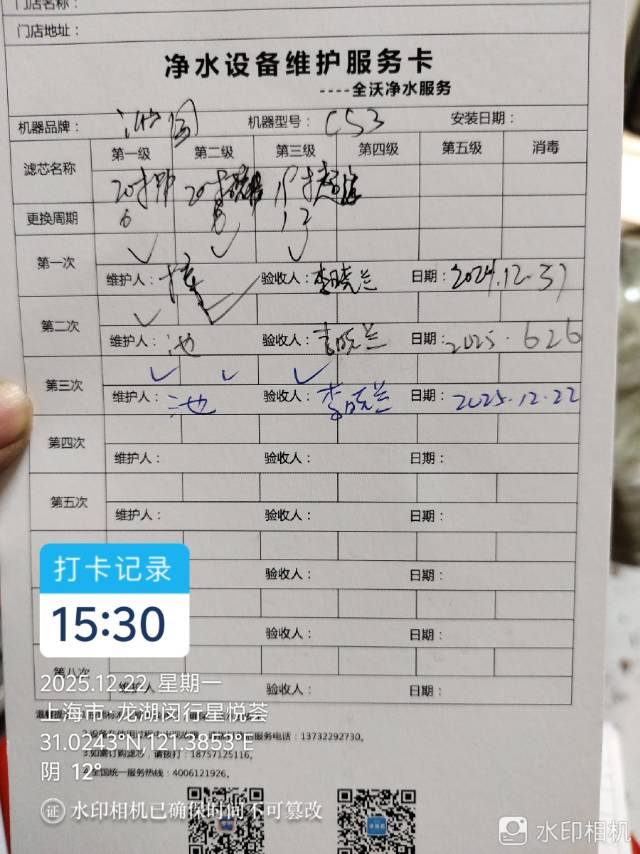 门店名称：
门店地址：
净水设备维护服务卡
----全沃净水服务
机器品牌： 机器型号：CS3 安装日期：
滤芯名称 第一级 第二级 第三级 第四级 第五级 消毒
更换周期 6 12
第一次
维护人： 验收人：李晓兰 日期：2024.12.31
第二次
维护人：池 验收人：李晓兰 日期：2025.626
第三次
维护人：池 验收人：李晓兰 日期：2025.12.22
第四次
维护人： 验收人： 日期：
第五次
维护人： 验收人： 日期：
打卡记录
验收人： 日期：
15:30
验收人： 日期：
第八次
维护人： 验收人： 日期：
2025.12.22 星期一
上海市·龙湖闵行星悦荟
服务电话：13732292730。
31.0243°N,121.3853°E
3.如需订购滤芯，请拨打：18757125116。
阴 12°
4.全国统一服务热线：4006121926。
证 水印相机已确保时间不可篡改
水印相机